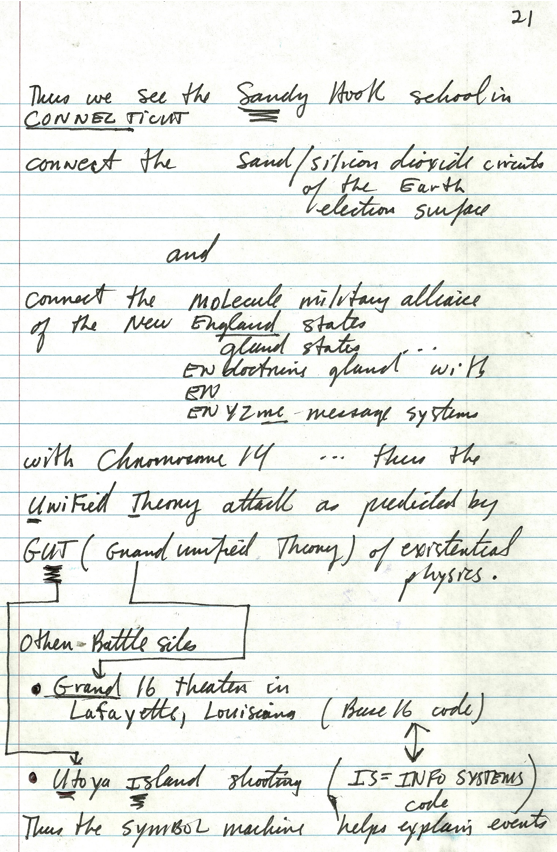 21
Thus we see the Sandy Hook school in
CONNECTICUT
connect the Sand/silicon dioxide circuits
of the Earth
election surface
and
connect the molecule military alliance
of the New England states
gland states ...
ENdoctrine gland with
EN
ENYZme-message systems
with Chromosome 14 ... thus the
Unified Theory attack as predicted by
GUT (Grand unified Theory) of existential
physics.
Other-Battle sites
• Grand 16 theater in
Lafayette, Louisiana (Base 16 code)
• Utoya Island shooting (IS = INFO SYSTEMS
code)
Thus the SYMBOL machine helps explain events